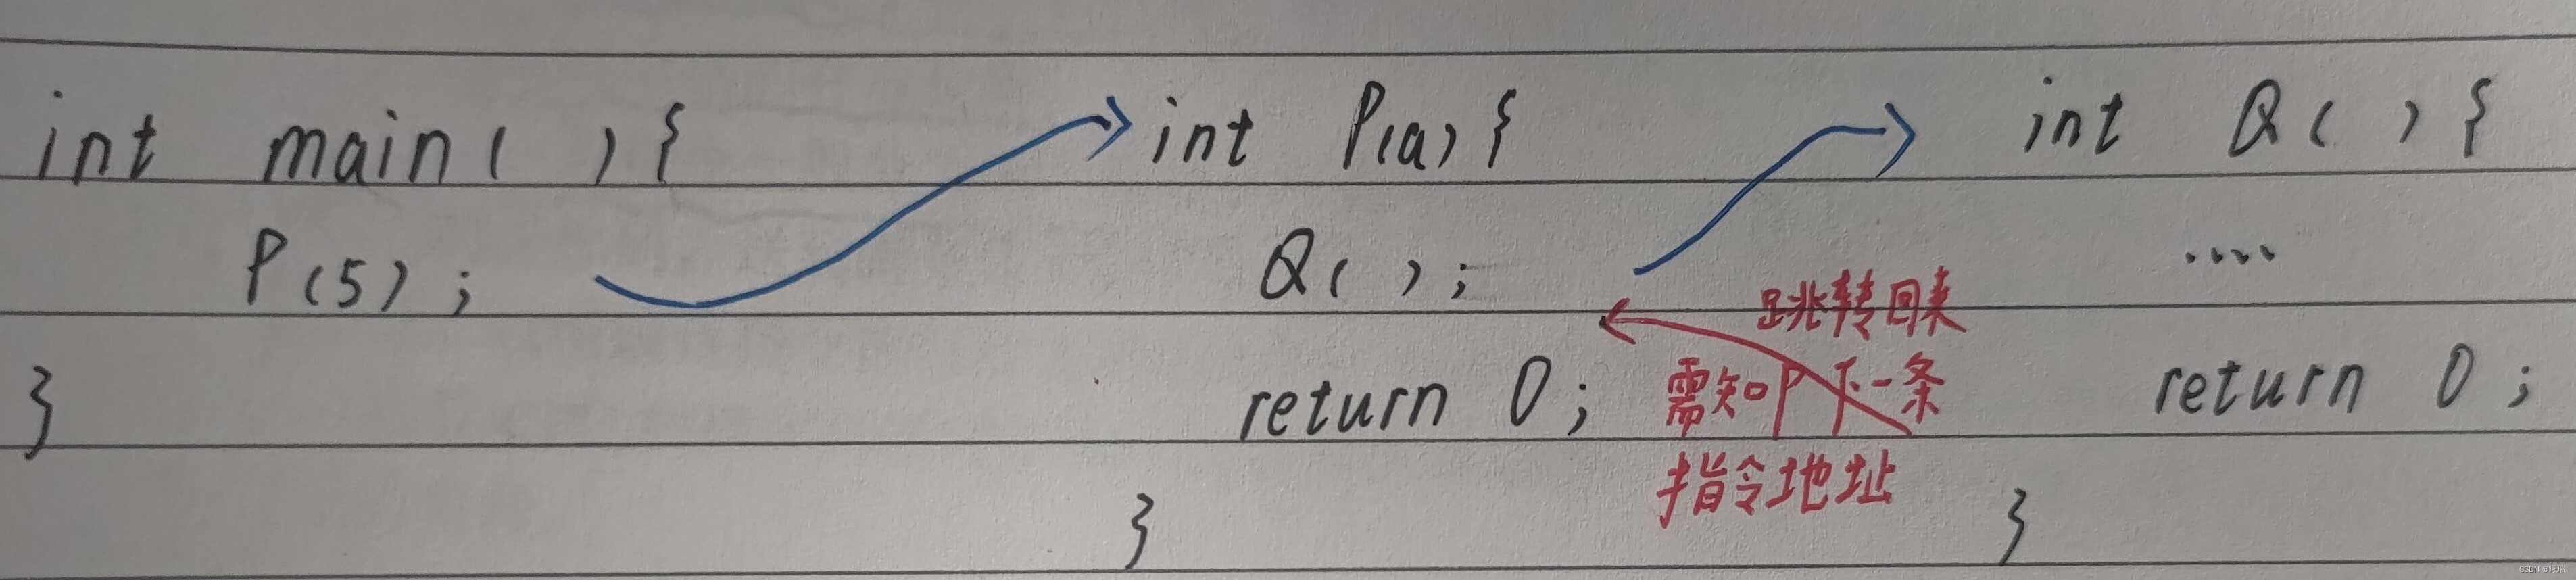 int main( ){
P(5);
}
int P(a){
Q( );
return 0;
}
跳转回来
需知P下一条
指令地址
int Q( ){
....
return 0;
}